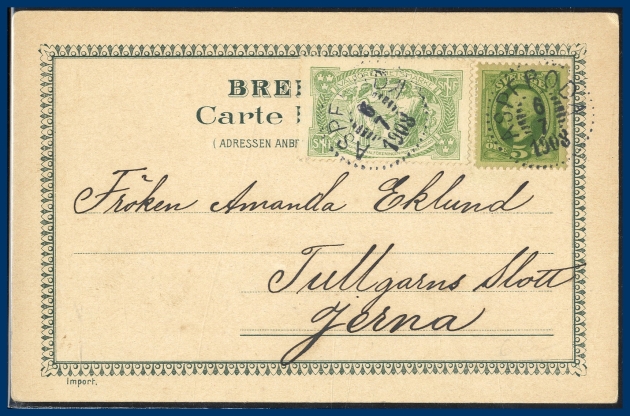 BRE
Carte
(ADRESSEN ANBR
ASPE
6
7
1908
SVERIGE
5
ASPEBODA
6
7
1908
Fröken Amanda Eklund
Tullgarns Slott
Jerna
Import.